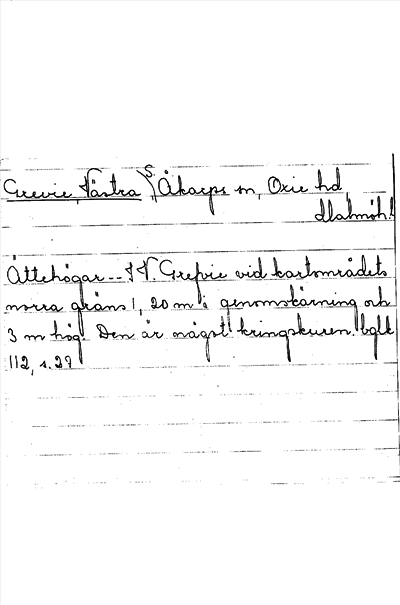 Grevie, Västra, S. Åkarps sn, Oxie hd,
Malmöh.l
Ättehögar -- I V. Grefvie vid kartområdets
norra gräns 1, 20 m i genomskärning och
3 m hög. Den är något kringskuren. bglk
112, s. 29